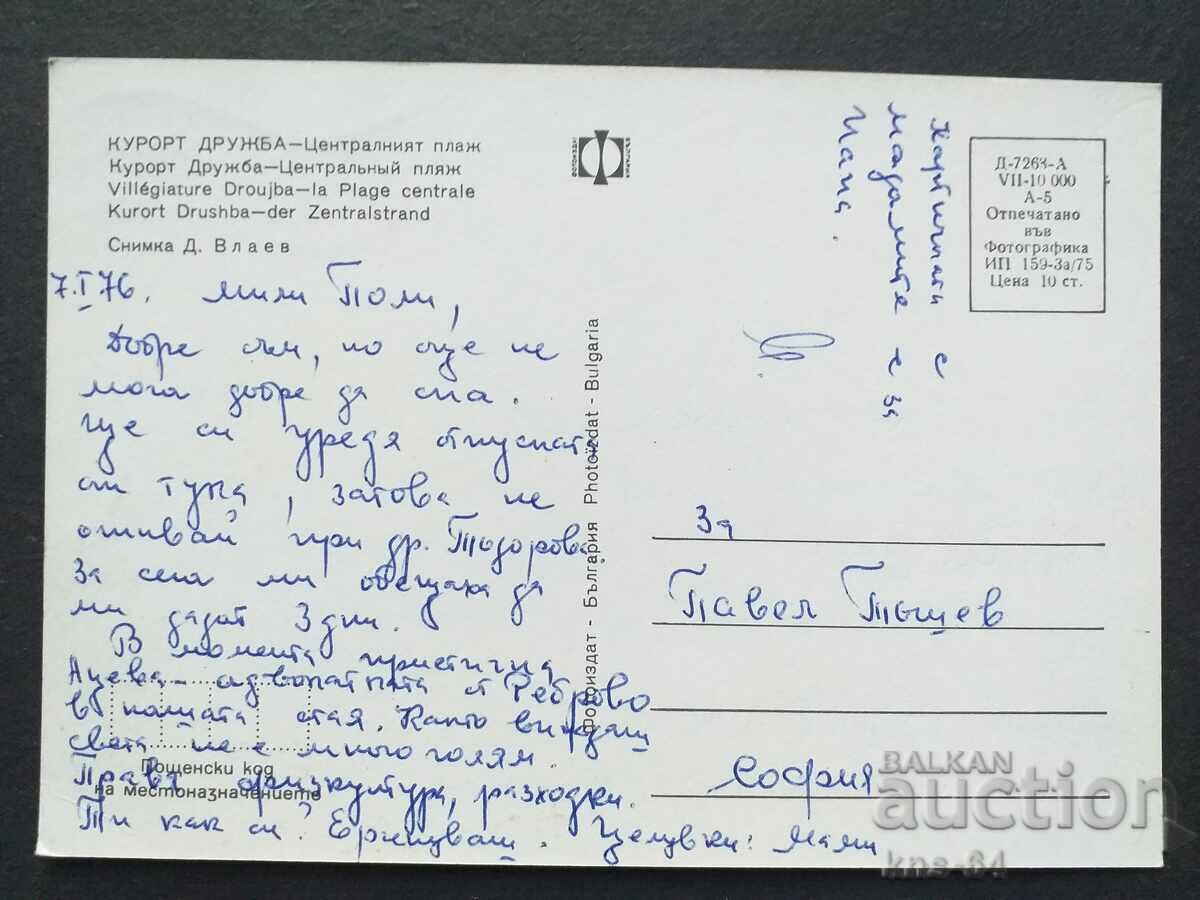 КУРОРТ ДРУЖБА—Централният плаж
Курорт Дружба—Центральный пляж
Villégiature Droujba—la Plage centrale
Kurort Drushba—der Zentralstrand
Снимка Д. Влаев
7.I 76. Мили Поли,
Добре съм, но още не
мога добре да спя.
Ще си уредя отпуската
от тука, затова не
отивай при др. Тодорова
За сега ми обещаха да
ми дадат 3 дни.
В момента пристигна
Ацева - адвокатката от Реброво
в нашата стая. Както виждаш
света не е много голям.
Правя физкултура, разходки.
Ти как си? Ергенуваш. Целувки: Мами
Пощенски код
на местоназначението
Фотоиздат - България Photoizdat - Bulgaria
ФОТОИЗДАТ
БЪЛГАРИЯ
Картичката с
мадамите е за
Д-7263-А
VII-10 000
А-5
Отпечатано
във
Фотографика
ИП 159-3а/75
Цена 10 ст.
За
Павел
София
BALKAN
auction
kns-64